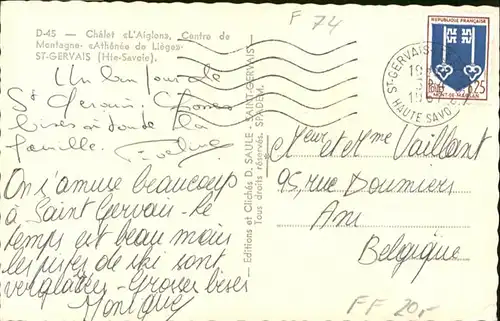 F 74
D-45 - Châlet «L'Aiglon», Centre de
Montagne «Athénée de Liège»
ST-GERVAIS (Hte-Savoie).
Un bonjour de
St Gervais. Grosses
bises à toute la
famille.
Eveline
On s'amuse beaucoup
à Saint Gervais. Le
temps est beau mais
les pistes de ski sont
verglacées - Grosses bises
Monique
Editions et Clichés D. SAULE - SAINT-GERVAIS
Tous droits réservés. SPADEM.
REPUBLIQUE FRANÇAISE
Postes 0,25
MONT-DE-MARSAN
ST-GERVAIS
HAUTE SAVOIE
Meur et Mme Vaillant
95, rue Doumiers
Ans
Belgique
FF 20,-